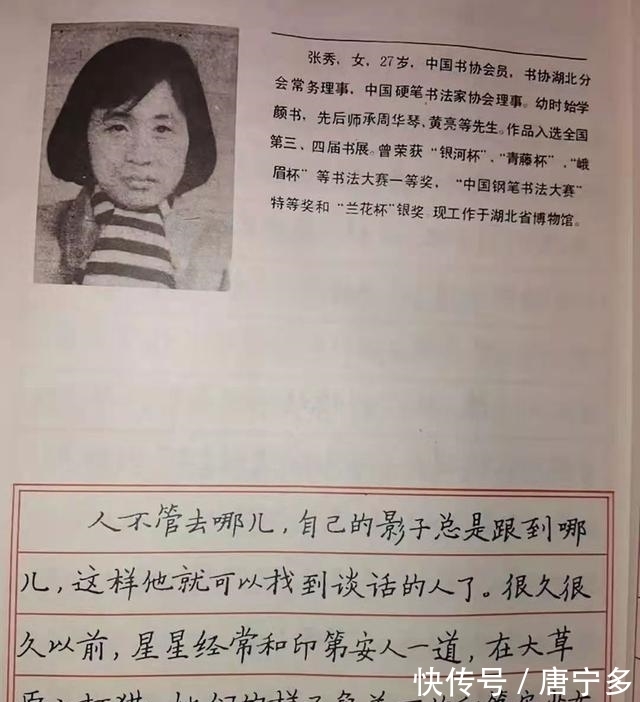 张秀，女，27岁，中国书协会员，书协湖北分
会常务理事，中国硬笔书法家协会理事。幼时始学
颜书，先后师承周华琴、黄亮等先生。作品入选全国
第三、四届书展。曾荣获“银河杯”、“青藤杯”、“峨
眉杯”等书法大赛一等奖，“中国钢笔书法大赛”
特等奖和“兰花杯”银奖 现工作于湖北省博物馆。
人不管去哪儿，自己的影子总是跟到哪
儿，这样他就可以找到谈话的人了。很久很
久以前，星星经常和印第安人一道，在大草
快传号／唐宁多